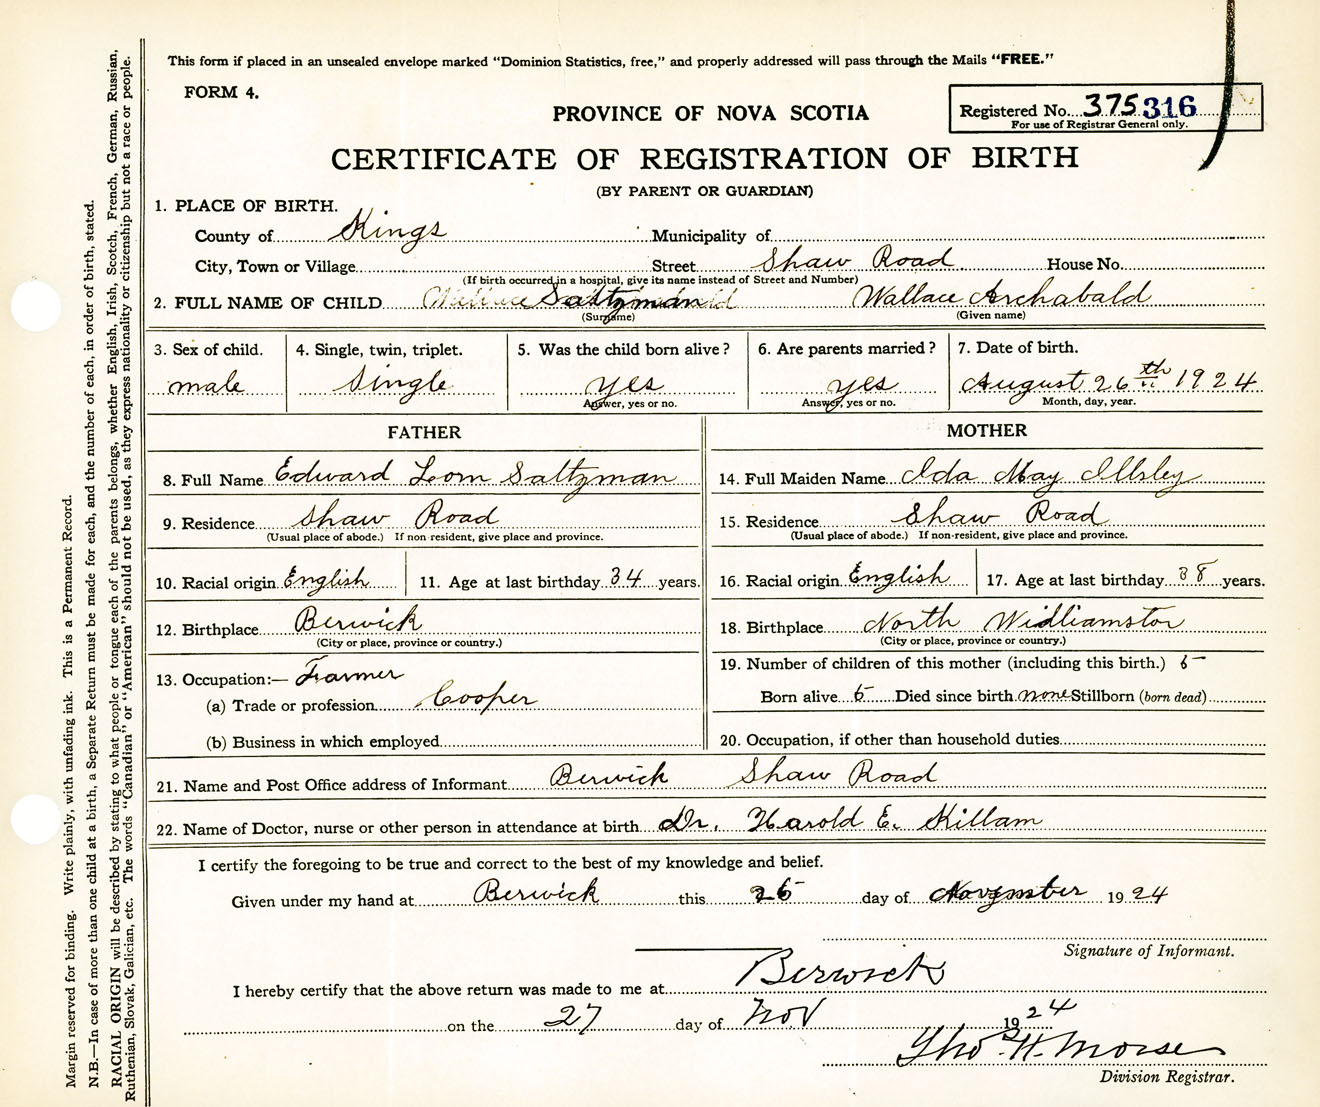 This form if placed in an unsealed envelope marked "Dominion Statistics, free," and properly addressed will pass through the Mails "FREE."
FORM 4.
PROVINCE OF NOVA SCOTIA
Registered No. 375 316
For use of Registrar General only.
CERTIFICATE OF REGISTRATION OF BIRTH
(BY PARENT OR GUARDIAN)
1. PLACE OF BIRTH.
County of Kings Municipality of
City, Town or Village Street Shaw Road House No.
(If birth occurred in a hospital, give its name instead of Street and Number)
2. FULL NAME OF CHILD Saltzman Wallace Archabald
(Surname) (Given name)
3. Sex of child. 4. Single, twin, triplet. 5. Was the child born alive? 6. Are parents married? 7. Date of birth.
male Single yes yes August 26th 1924
Answer, yes or no. Answer, yes or no. Month, day, year.
FATHER MOTHER
8. Full Name Edward Leom Saltzman 14. Full Maiden Name Ida May Illsley
9. Residence Shaw Road 15. Residence Shaw Road
(Usual place of abode.) If non-resident, give place and province. (Usual place of abode.) If non-resident, give place and province.
10. Racial origin English 11. Age at last birthday 34 years. 16. Racial origin English 17. Age at last birthday 38 years.
12. Birthplace Berwick 18. Birthplace North Williamston
(City or place, province or country.) (City or place, province or country.)
13. Occupation:— Farmer 19. Number of children of this mother (including this birth.) 5
(a) Trade or profession Cooper Born alive 5 Died since birth none Stillborn (born dead)
(b) Business in which employed 20. Occupation, if other than household duties
21. Name and Post Office address of Informant Berwick Shaw Road
22. Name of Doctor, nurse or other person in attendance at birth Dr. Harold E. Killam
I certify the foregoing to be true and correct to the best of my knowledge and belief.
Given under my hand at Berwick this 25 day of November 1924
Signature of Informant.
I hereby certify that the above return was made to me at Berwick
on the 27 day of Nov 1924
Thos H. Morse
Division Registrar.
Margin reserved for binding. Write plainly, with unfading ink. This is a Permanent Record.
N.B.—In case of more than one child at a birth, a Separate Return must be made for each, and the number of each, in order of birth, stated.
RACIAL ORIGIN will be described by stating to what people or tongue each of the parents belongs, whether English, Irish, Scotch, French, German, Russian,
Ruthenian, Slovak, Galician, etc. The words "Canadian" or "American" should not be used, as they express nationality or citizenship but not a race or people.